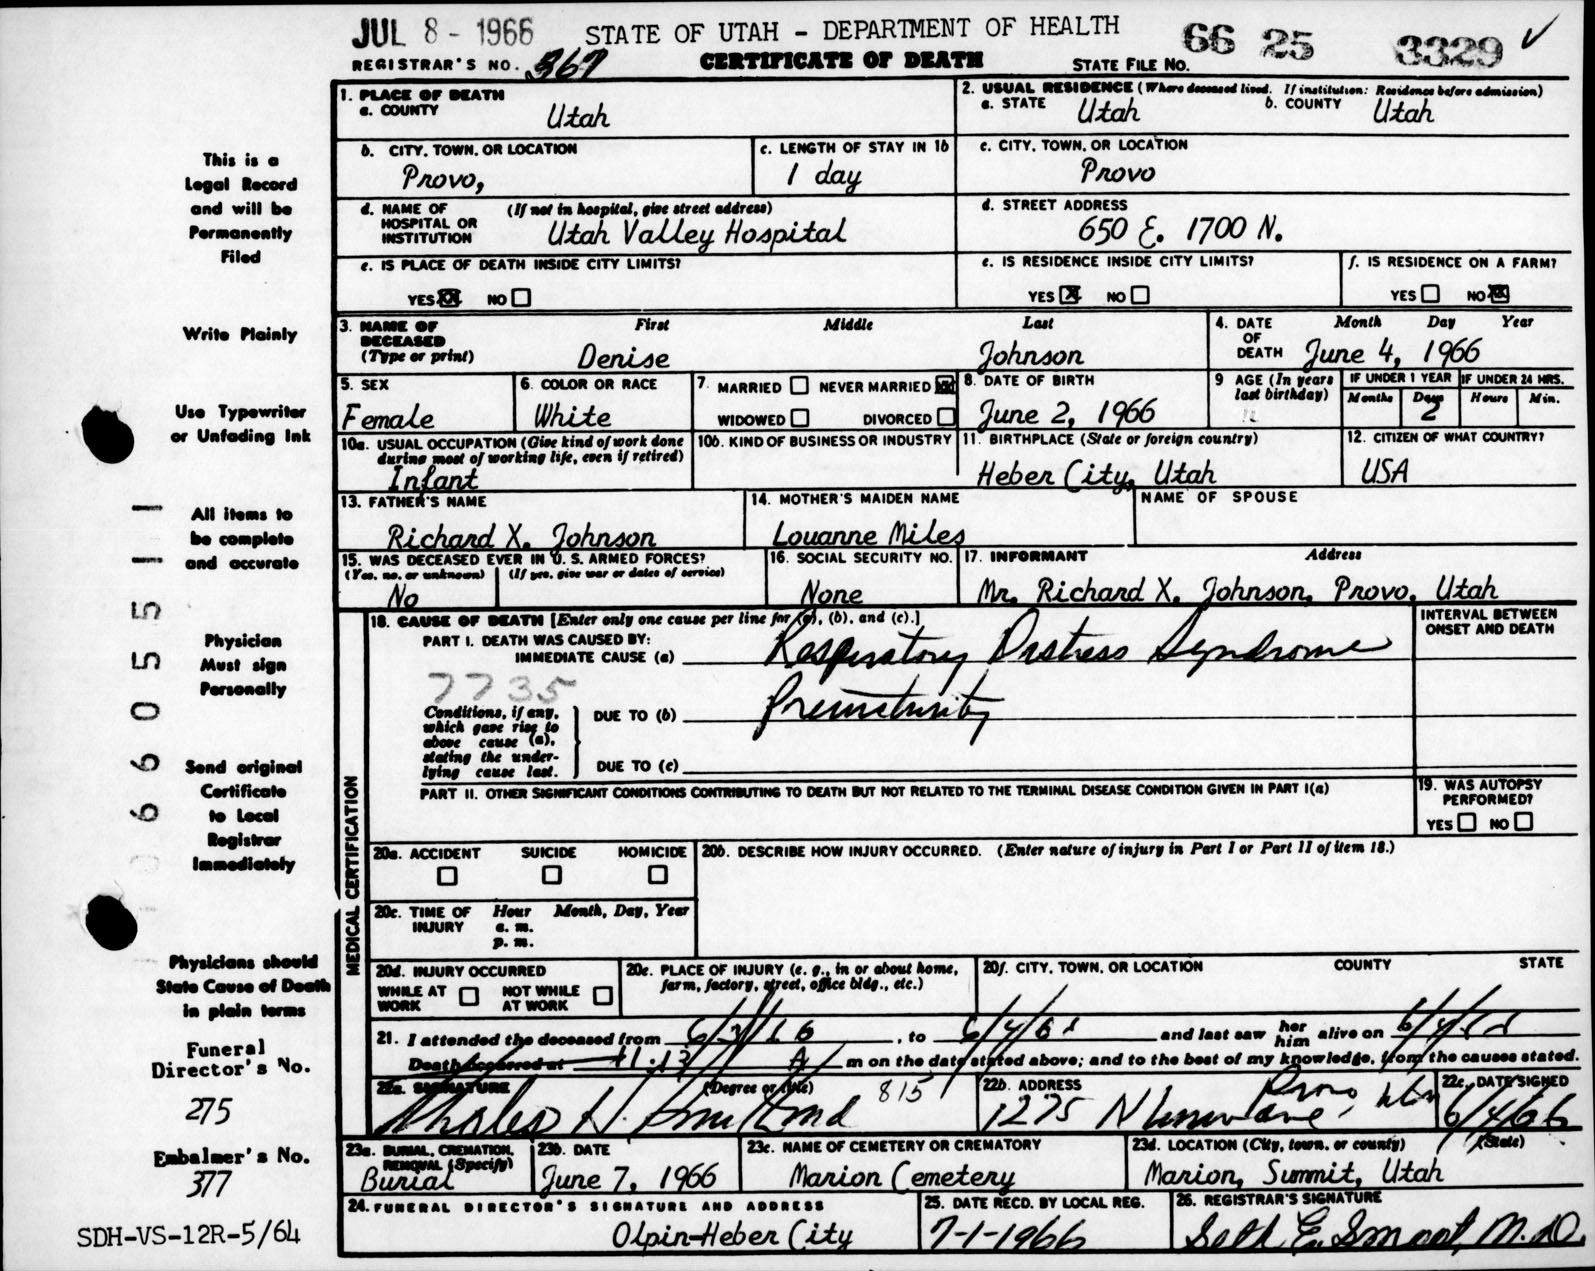 JUL 8 - 1966 STATE OF UTAH - DEPARTMENT OF HEALTH 66 25 3329 ✓
REGISTRAR'S NO. 367 CERTIFICATE OF DEATH STATE FILE NO.
1. PLACE OF DEATH
a. COUNTY Utah
2. USUAL RESIDENCE (Where deceased lived. If institution: Residence before admission)
a. STATE Utah b. COUNTY Utah
b. CITY, TOWN, OR LOCATION Provo,
c. LENGTH OF STAY IN 1b 1 day
c. CITY, TOWN, OR LOCATION Provo
d. NAME OF HOSPITAL OR INSTITUTION (If not in hospital, give street address) Utah Valley Hospital
d. STREET ADDRESS 650 E. 1700 N.
e. IS PLACE OF DEATH INSIDE CITY LIMITS?
YES X NO
e. IS RESIDENCE INSIDE CITY LIMITS?
YES X NO
f. IS RESIDENCE ON A FARM?
YES NO X
3. NAME OF DECEASED (Type or print) First Middle Last
Denise Johnson
4. DATE OF DEATH Month Day Year
June 4, 1966
5. SEX Female
6. COLOR OR RACE White
7. MARRIED NEVER MARRIED X
WIDOWED DIVORCED
8. DATE OF BIRTH June 2, 1966
9 AGE (In years last birthday)
IF UNDER 1 YEAR Months Days 2
IF UNDER 24 HRS. Hours Min.
10a. USUAL OCCUPATION (Give kind of work done during most of working life, even if retired)
Infant
10b. KIND OF BUSINESS OR INDUSTRY
11. BIRTHPLACE (State or foreign country)
Heber City, Utah
12. CITIZEN OF WHAT COUNTRY?
USA
13. FATHER'S NAME
Richard X. Johnson
14. MOTHER'S MAIDEN NAME
Louanne Miles
NAME OF SPOUSE
15. WAS DECEASED EVER IN U. S. ARMED FORCES?
(Yes, no, or unknown) (If yes, give war or dates of service)
No
16. SOCIAL SECURITY NO.
None
17. INFORMANT Address
Mr. Richard X. Johnson, Provo, Utah
MEDICAL CERTIFICATION
18. CAUSE OF DEATH [Enter only one cause per line for (a), (b), and (c).]
INTERVAL BETWEEN ONSET AND DEATH
PART I. DEATH WAS CAUSED BY:
IMMEDIATE CAUSE (a) Respiratory Distress Syndrome
7735
Conditions, if any, which gave rise to above cause (a), stating the underlying cause last.
DUE TO (b) Prematurity
DUE TO (c)
PART II. OTHER SIGNIFICANT CONDITIONS CONTRIBUTING TO DEATH BUT NOT RELATED TO THE TERMINAL DISEASE CONDITION GIVEN IN PART I(a)
19. WAS AUTOPSY PERFORMED?
YES NO
20a. ACCIDENT SUICIDE HOMICIDE
20b. DESCRIBE HOW INJURY OCCURRED. (Enter nature of injury in Part I or Part II of item 18.)
20c. TIME OF INJURY Hour Month, Day, Year
a. m.
p. m.
20d. INJURY OCCURRED
WHILE AT WORK NOT WHILE AT WORK
20e. PLACE OF INJURY (e. g., in or about home, farm, factory, street, office bldg., etc.)
20f. CITY, TOWN, OR LOCATION COUNTY STATE
21. I attended the deceased from , to 6/4/66 and last saw her him alive on 6/4/66
Death occurred at 11:13 A m on the date stated above; and to the best of my knowledge, from the causes stated.
22a. SIGNATURE (Degree or title) 815
22b. ADDRESS
1275 N
22c. DATE SIGNED
6/4/66
23a. BURIAL, CREMATION, REMOVAL (Specify)
Burial
23b. DATE
June 7, 1966
23c. NAME OF CEMETERY OR CREMATORY
Marion Cemetery
23d. LOCATION (City, town, or county) (State)
Marion, Summit, Utah
24. FUNERAL DIRECTOR'S SIGNATURE AND ADDRESS
Olpin-Heber City
25. DATE RECD. BY LOCAL REG.
7-1-1966
26. REGISTRAR'S SIGNATURE
Seth E. Smoot, M.D.
This is a
Legal Record
and will be
Permanently
Filed
Write Plainly
Use Typewriter
or Unfading Ink
All items to
be complete
and accurate
Physician
Must sign
Personally
Send original
Certificate
to Local
Registrar
Immediately
Physicians should
State Cause of Death
in plain terms
Funeral
Director's No.
275
Embalmer's No.
377
SDH-VS-12R-5/64